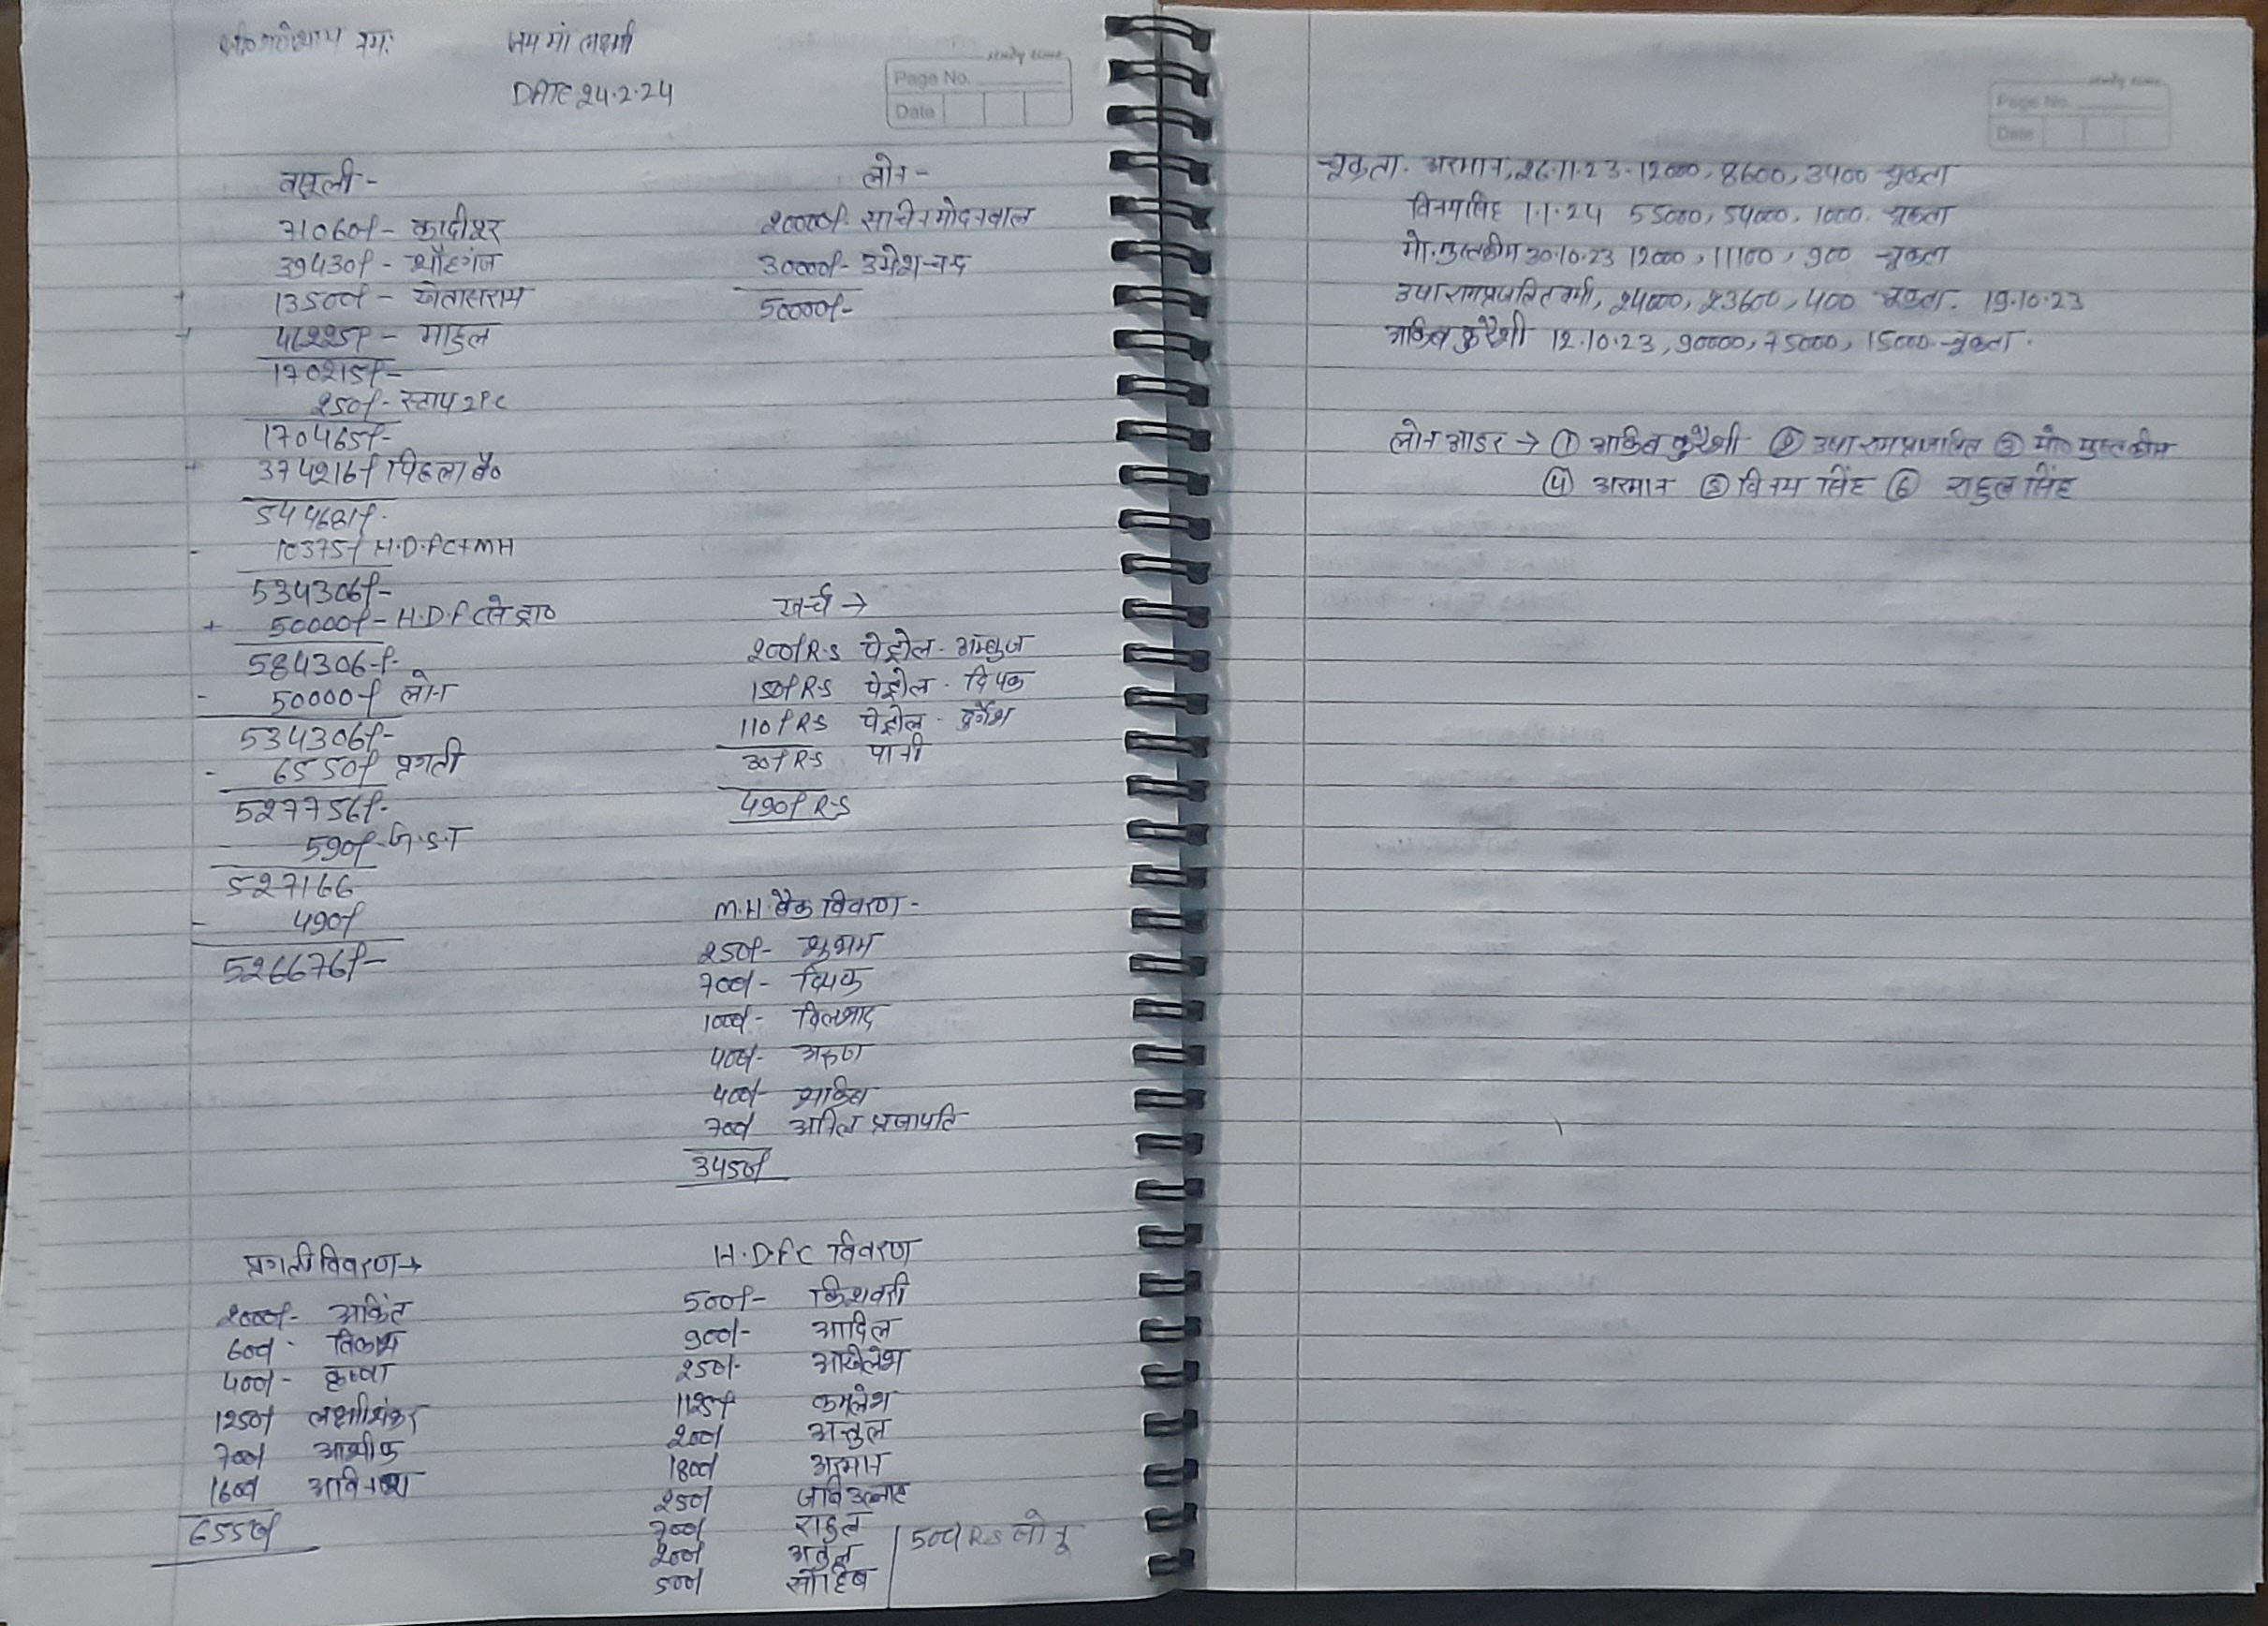 श्री गणेशाय नमः जय मां लक्ष्मी
DATE 24.2.24
study time
Page No.
Date
वसूली -
71060/- कादीपुर
39430/- शाहगंज
+ 13500/- खेतासराय
+ 46225/- माहुल
170215/-
250/- स्टाप 2PC
170465/-
+ 374216/- पिछला बै०
544681/-
- 10375/- H.D.FC+MH
534306/-
+ 50000/- H.D.FC से
584306/-
- 50000/- लोन
534306/-
- 6550/- प्रगती
527756/-
- 590/- G.S.T
527166
- 490/-
526676/-
लोन -
20000/- सचिन मोदनवाल
30000/- उमेश चन्द
50000/-
खर्च →
200/RS पेट्रोल - अम्बुज
150/RS पेट्रोल - दिपक
110/RS पेट्रोल - दुर्गेश
30/RS पानी
490/RS
M.H. बैंक विवरण -
250/- शुभम
700/- दिपक
1000/- दिलशाद
400/- अरुण
400/- शाकिब
700/ अनिल प्रजापति
3450/
प्रगती विवरण →
2000/- अंकित
600/- विकाश
400/- कृष्णा
1250/ लक्ष्मीशंकर
700/ आशीफ
1600/ अविनाश
6550/
H.D.FC विवरण
500/- किशवरी
900/- आदिल
250/- अखिलेश
1125/ कमलेश
200/ अतुल
1800/ अरमान
250/ जबिउल्लाह
700/ राहुल
200/ अतुल
500/ साहिब
500/RS सोनू
study time
Page No.
Date
चूकता. अरमान, 26.11.23-12000, 8600, 3400 चूकता
विनय सिंह 1.1.24 55000, 54000, 1000. चूकता
मो. मुस्तकीम 30.10.23 12000, 11100, 900 चूकता
उषा राम प्रजापति, 24000, 23600, 400 चूकता. 19.10.23
आकिब कुरैशी 12.10.23, 90000, 75000, 15000 चूकता.
लोन आडर → ① आकिब कुरैशी ② उषा राम प्रजापति ③ मो० मुस्तकीम
④ अरमान ⑤ विनय सिंह ⑥ राहुल सिंह